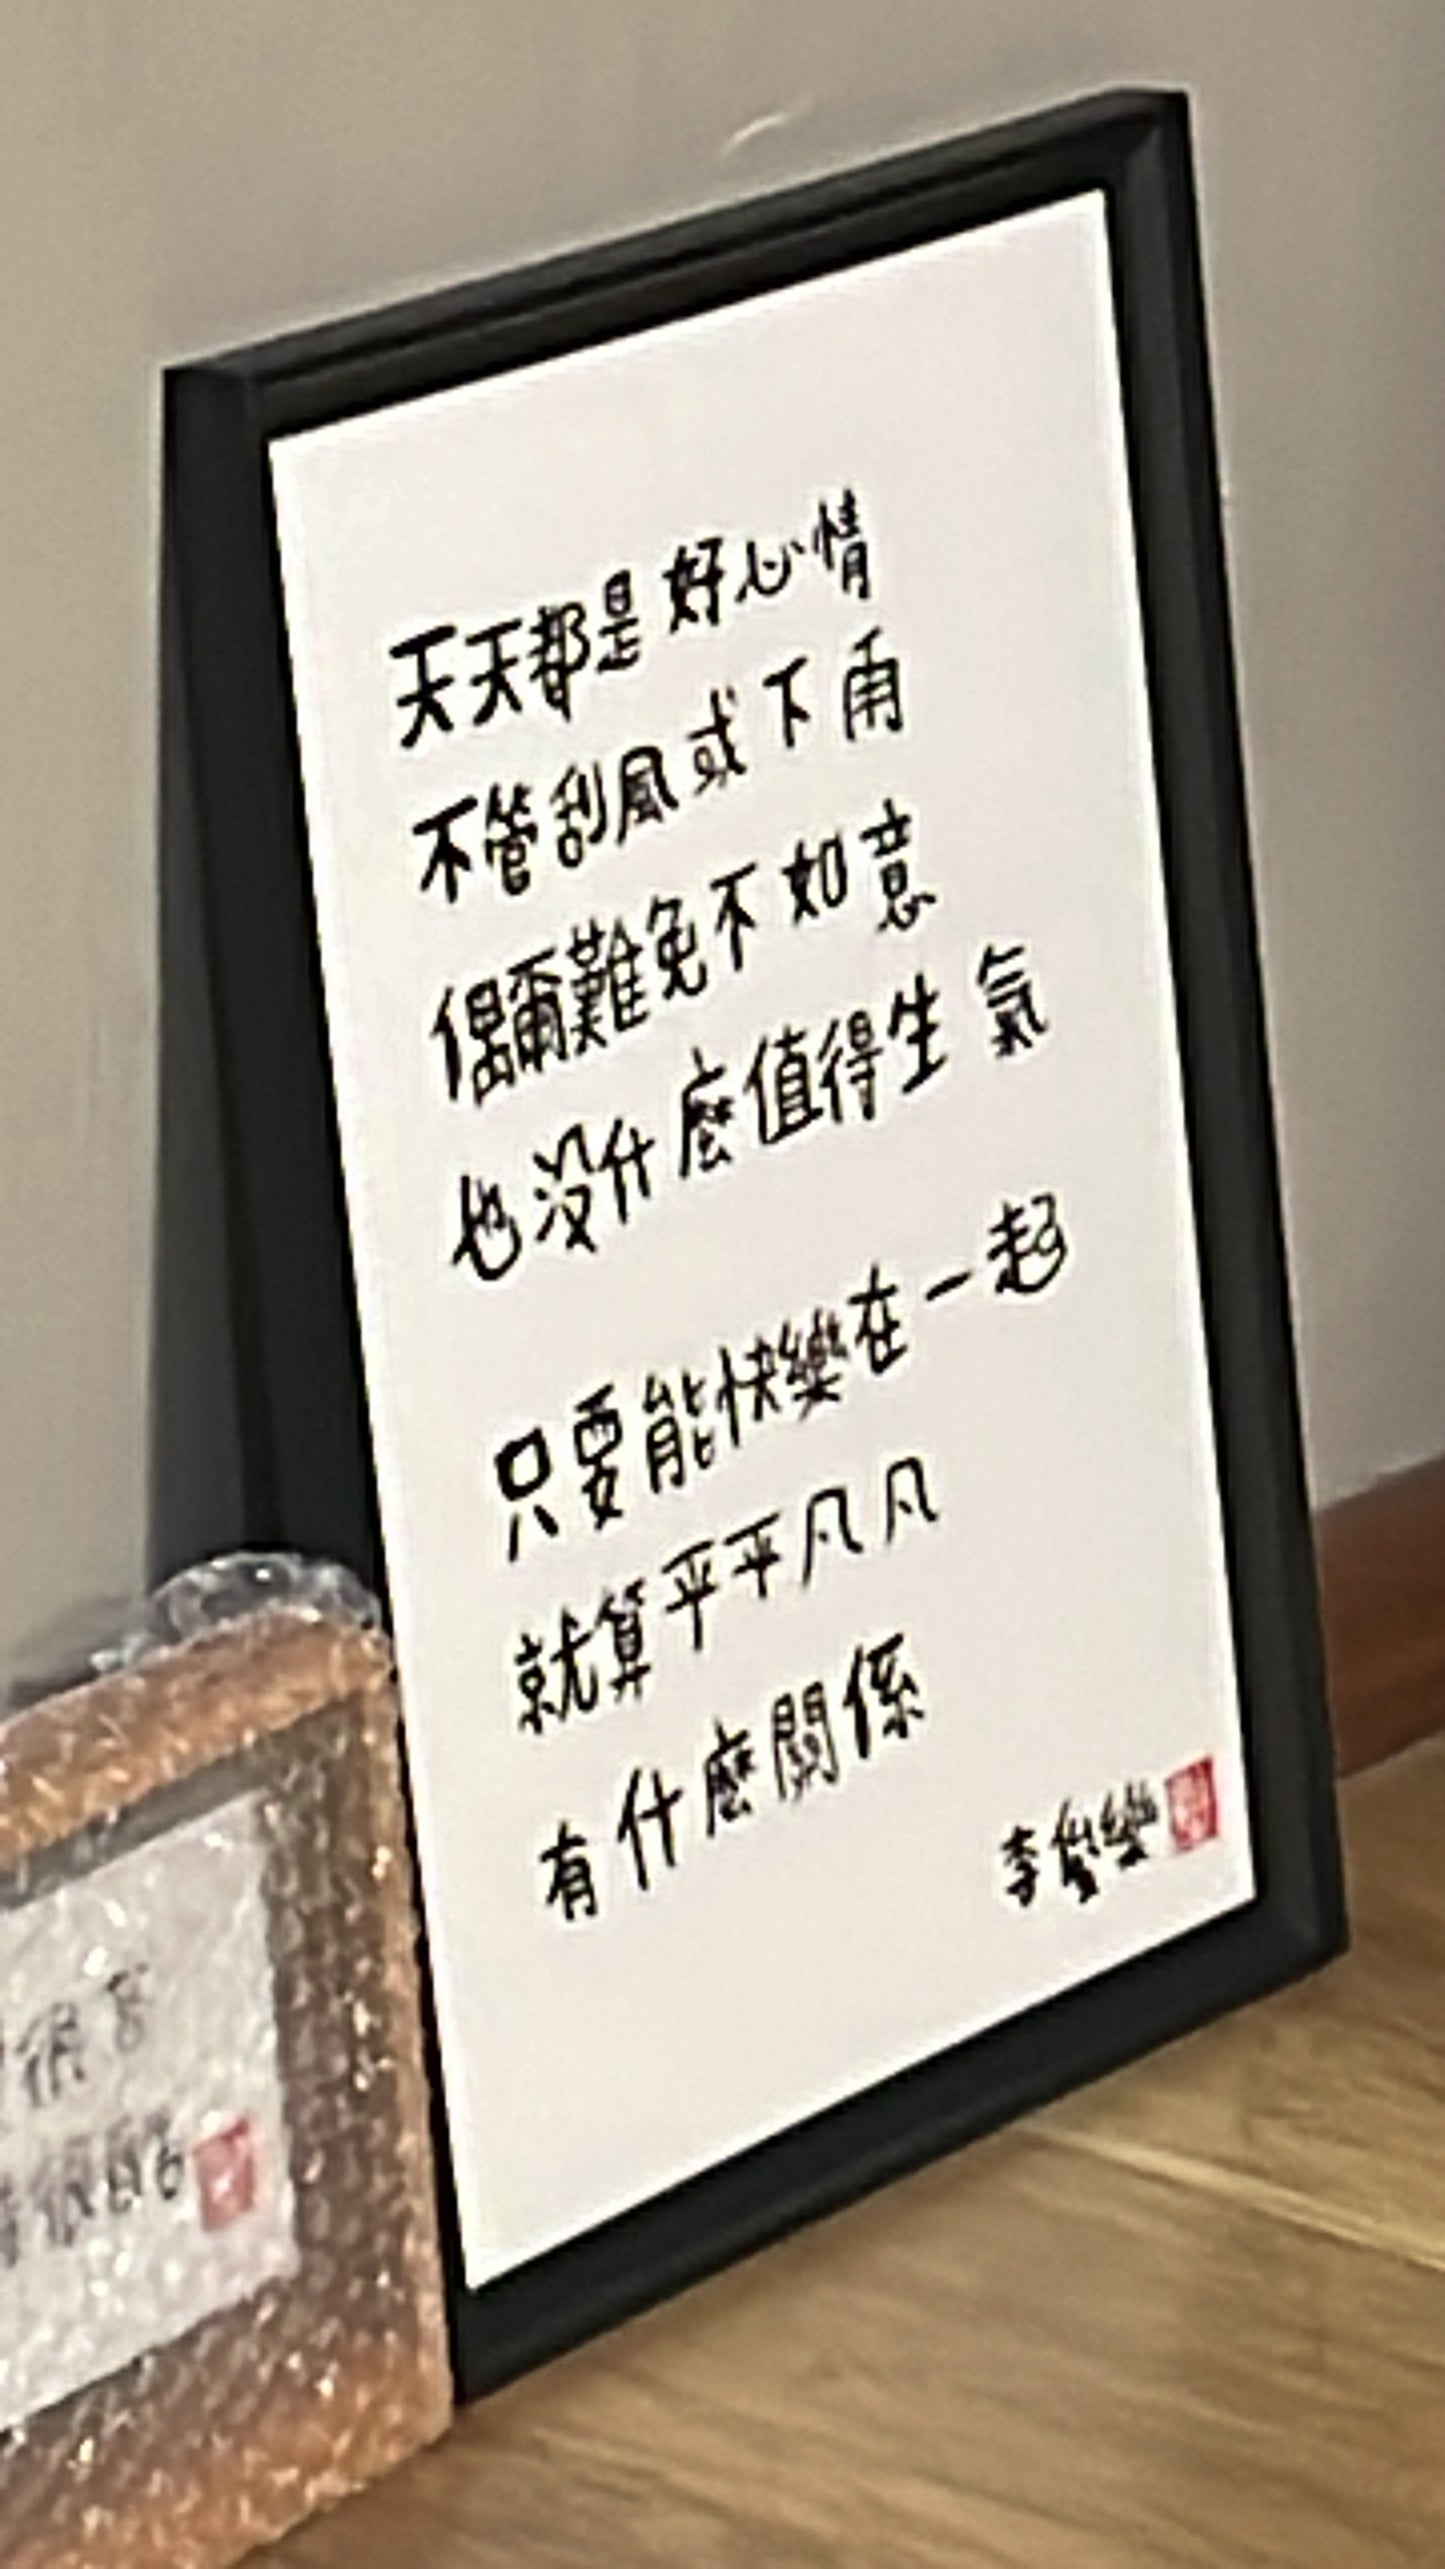 天天都是好心情
不管刮風或下雨
偶爾難免不如意
也沒什麼值得生氣
只要能快樂在一起
就算平平凡凡
有什麼關係
李 樂
很